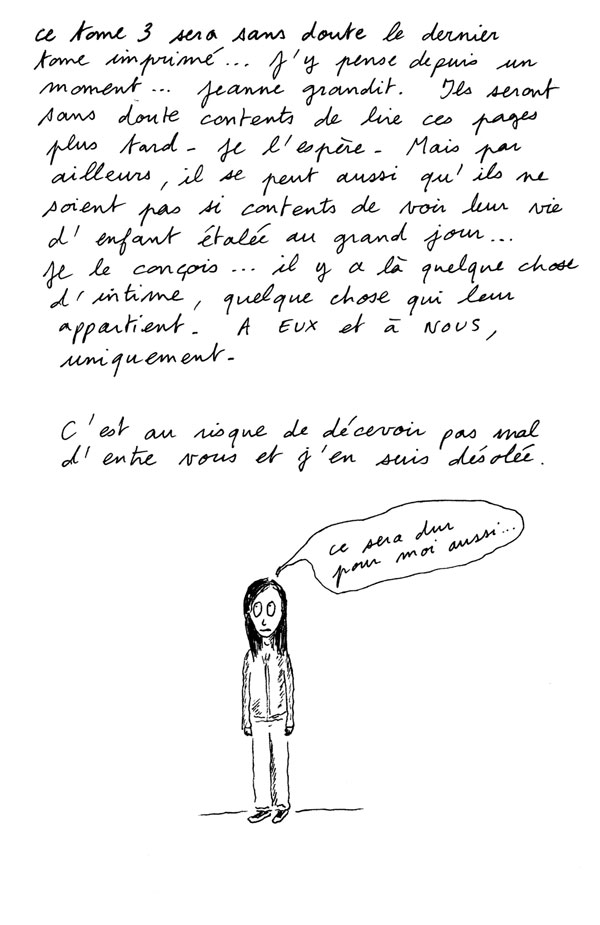 ce tome 3 sera sans doute le dernier
tome imprimé... J'y pense depuis un
moment... Jeanne grandit. Ils seront
sans doute contents de lire ces pages
plus tard - Je l'espère - Mais par
ailleurs, il se peut aussi qu'ils ne
soient pas si contents de voir leur vie
d'enfant étalée au grand jour...
Je le conçois... il y a là quelque chose
d'intime, quelque chose qui leur
appartient - A EUX et à NOUS,
uniquement -
C'est au risque de décevoir pas mal
d'entre vous et j'en suis désolée.
ce sera dur
pour moi aussi...